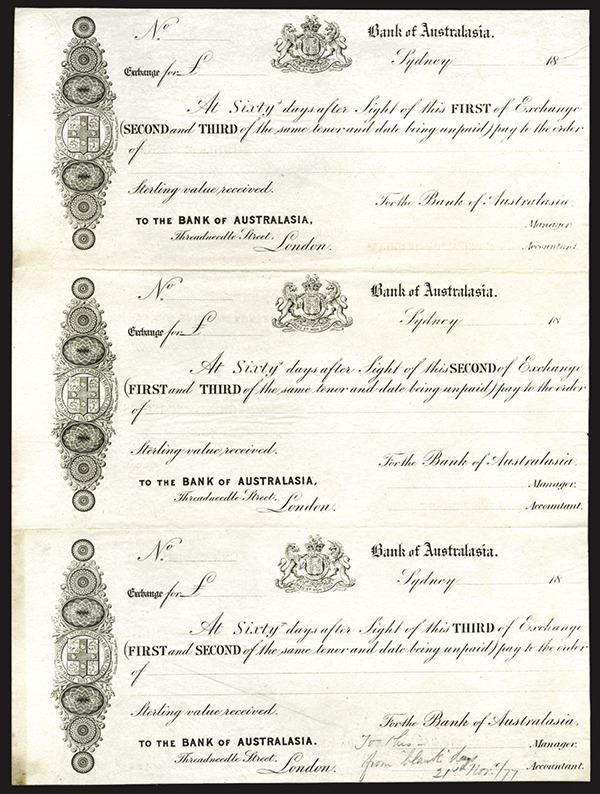 No
Bank of Australasia.
Sydney 18
Exchange for £
At Sixty days after Sight of this FIRST of Exchange
(SECOND and THIRD of the same tenor and date being unpaid) pay to the order
of
Sterling value received.
For the Bank of Australasia.
TO THE BANK OF AUSTRALASIA,
Manager.
Threadneedle Street,
London.
Accountant.
No
Bank of Australasia.
Sydney 18
Exchange for £
At Sixty days after Sight of this SECOND of Exchange
(FIRST and THIRD of the same tenor and date being unpaid) pay to the order
of
Sterling value received.
For the Bank of Australasia.
TO THE BANK OF AUSTRALASIA,
Manager.
Threadneedle Street,
London.
Accountant.
No
Bank of Australasia.
Sydney 18
Exchange for £
At Sixty days after Sight of this THIRD of Exchange
(FIRST and SECOND of the same tenor and date being unpaid) pay to the order
of
Sterling value received.
For the Bank of Australasia.
TO THE BANK OF AUSTRALASIA.
Manager.
Threadneedle Street,
London.
from blank
21st Novr/77
Accountant.